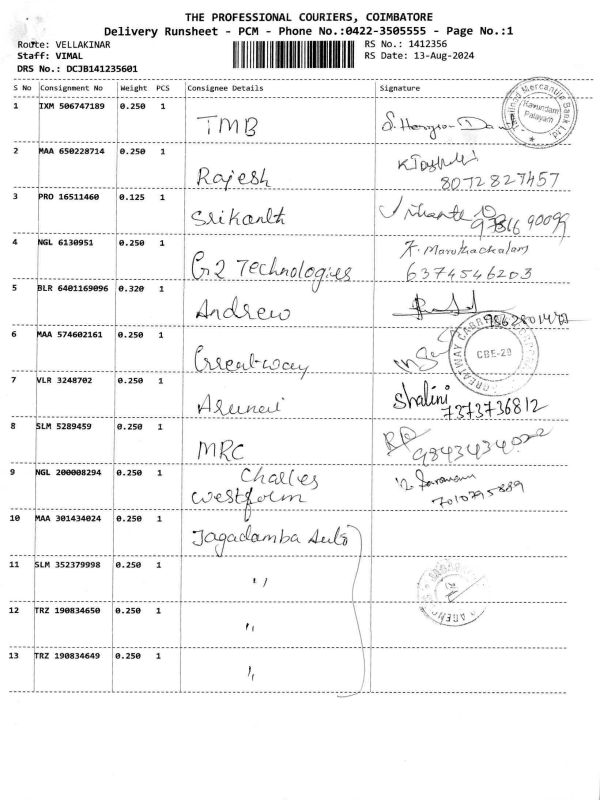 THE PROFESSIONAL COURIERS, COIMBATORE
Delivery Runsheet - PCM - Phone No.:0422-3505555 - Page No.:1
Route: VELLAKINAR RS No.: 1412356
Staff: VIMAL RS Date: 13-Aug-2024
DRS No.: DCJB141235601
S No Consignment No Weight PCS Consignee Details Signature
1 IXM 506747189 0.250 1 TMB
Tamilnad Mercantile Bank Ltd.
Kavundam
Palayam
2 MAA 650228714 0.250 1 Rajesh
8072827457
3 PRO 16511460 0.125 1 Srikanth
4 NGL 6130951 0.250 1 G2 Technologies K. Maruthachalam
6374546203
5 BLR 6401169096 0.320 1 Andrew
6 MAA 574602161 0.250 1 Greatway
CBE-29
7 VLR 3248702 0.250 1 Shalini
7373736812
8 SLM 5289459 0.250 1 MRC
9 NGL 200008294 0.250 1 Charles
Westform
7010795889
10 MAA 301434024 0.250 1 Jagadamba Auto
11 SLM 352379998 0.250 1 "
12 TRZ 190834650 0.250 1 "
13 TRZ 190834649 0.250 1 "